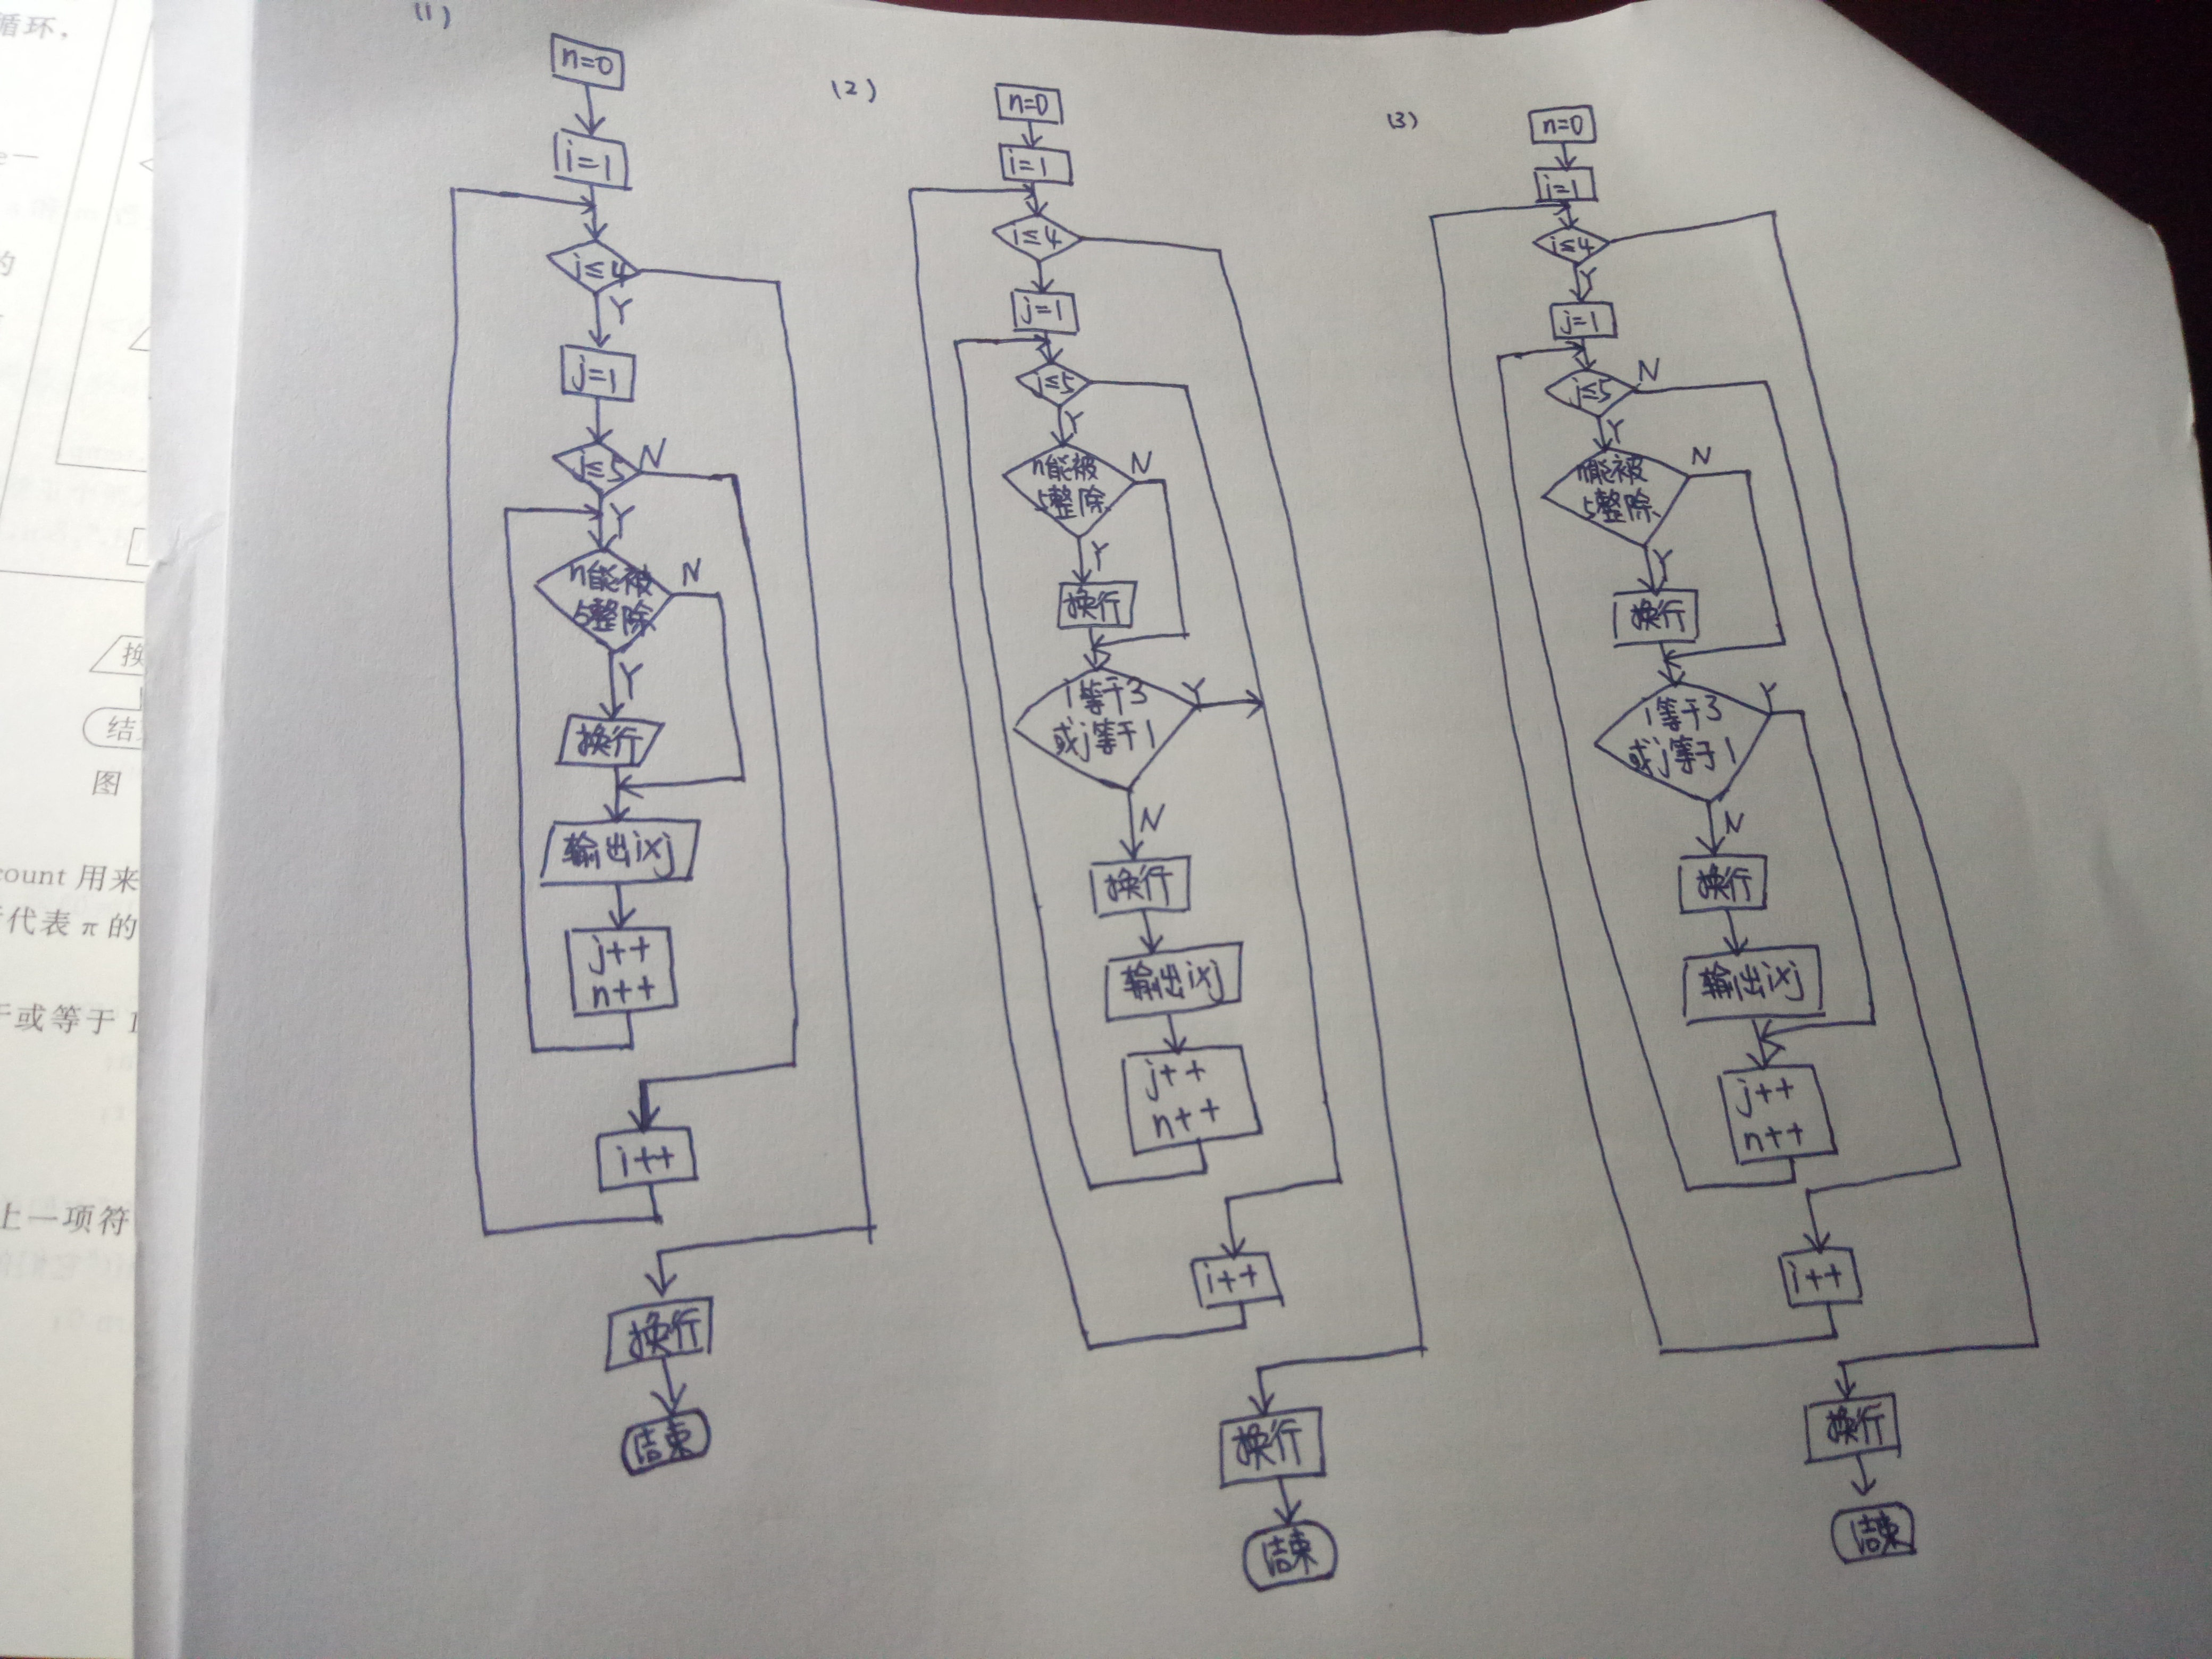 循环，
的
换
结
图
count 用来
代表 π 的
或等于 1
上一项符
(1)
n=0
i=1
i≤4
Y
j=1
j≤5
N
Y
n能被
5整除
N
Y
换行
输出i×j
j++
n++
i++
换行
结束
(2)
n=0
i=1
i≤4
j=1
j≤5
Y
n能被
5整除
N
Y
换行
i等于3
或j等于1
Y
N
换行
输出i×j
j++
n++
i++
换行
结束
(3)
n=0
i=1
i≤4
Y
j=1
j≤5
N
Y
n能被
5整除
N
Y
换行
i等于3
或j等于1
Y
N
换行
输出i×j
j++
n++
i++
换行
结束